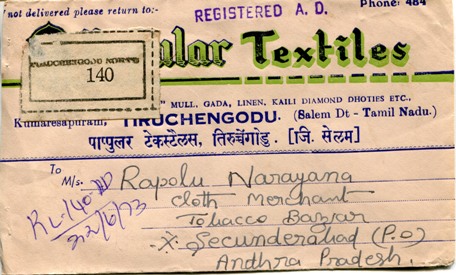 not delivered please return to:-
REGISTERED A. D.
Phone: 484
Textiles
TIRUCHENGODU NORTH
140
" MULL, GADA, LINEN, KAILI DIAMOND DHOTIES ETC.,
Kumaresapuram, TIRUCHENGODU. (Salem Dt - Tamil Nadu.)
पाप्पुलर टेक्स्टैलस, तिरुचेंगोडु. [जि. सेलम]
To
M/s: Rapolu Narayana
Cloth Merchant
Tobacco Bazaar
Secunderabad (P.O)
Andhra Pradesh.
RL-140
22/6/73